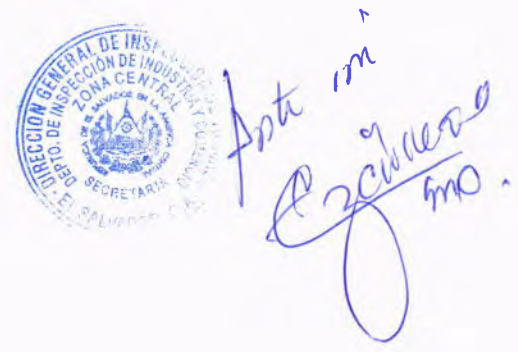 DIRECCIÓN GENERAL DE INSPECCIÓN
DEPTO. DE INSPECCIÓN DE INDUSTRIA Y COMERCIO
ZONA CENTRAL
REPÚBLICA DE EL SALVADOR EN LA AMÉRICA CENTRAL
SECRETARIA
EL SALVADOR, C.A.
Ante mí
srio.